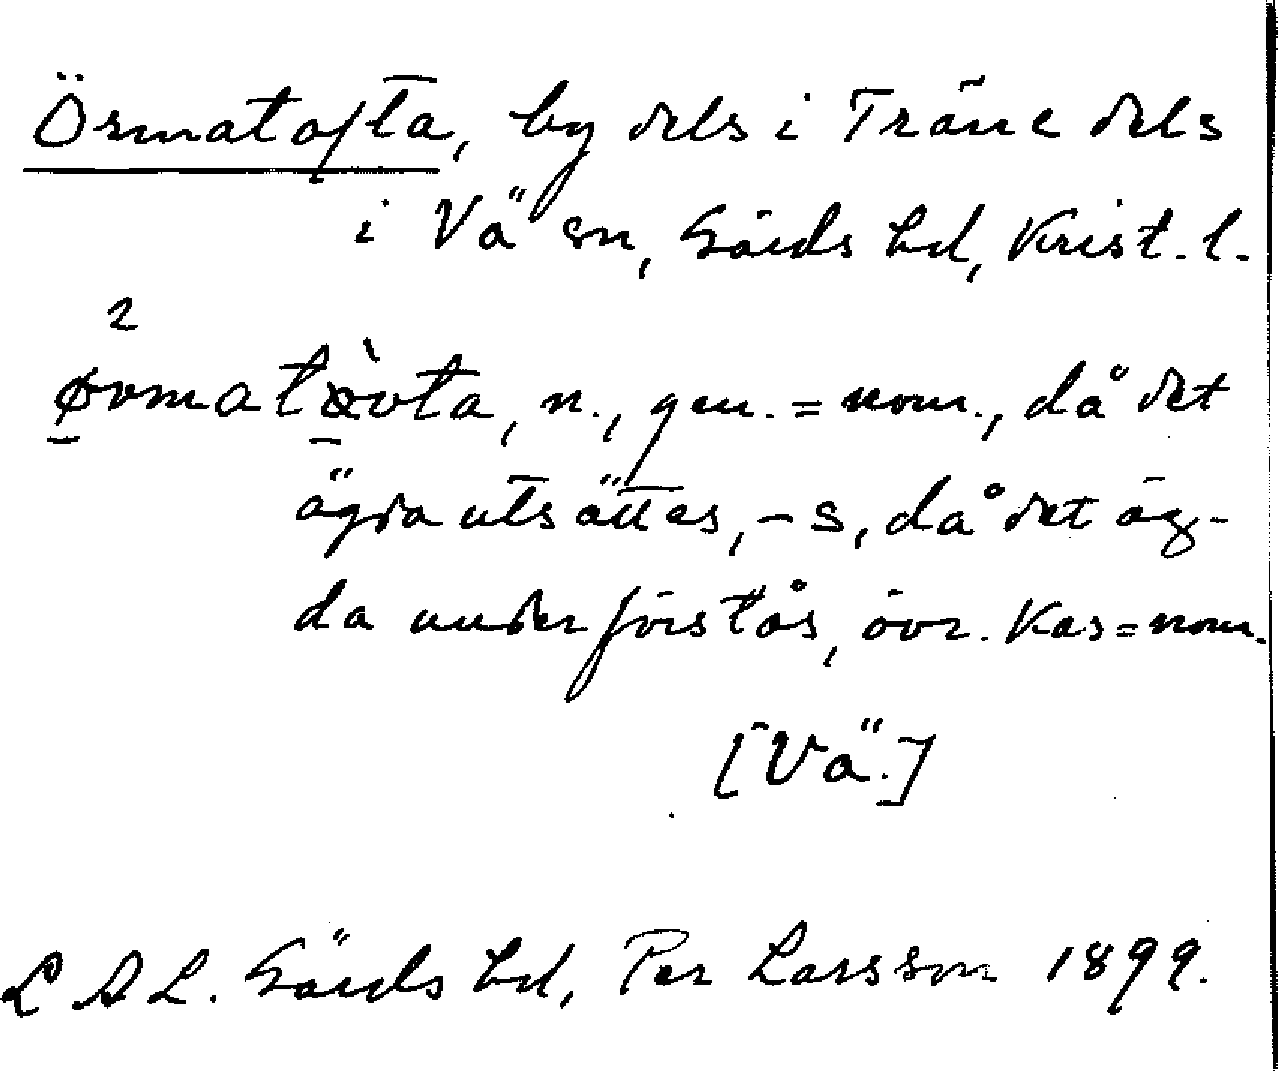 Örmatofta, by dels i Träne dels
i Vä sn, Gärds hd, Krist. l.
2
ørmatòvta, n., gen. = nom., då det
ägda utsättes, -s, då det äg-
da underförstås, övr. Kas = nom.
[Vä.]
L A L. Gärds hd, Per Larsson 1899.